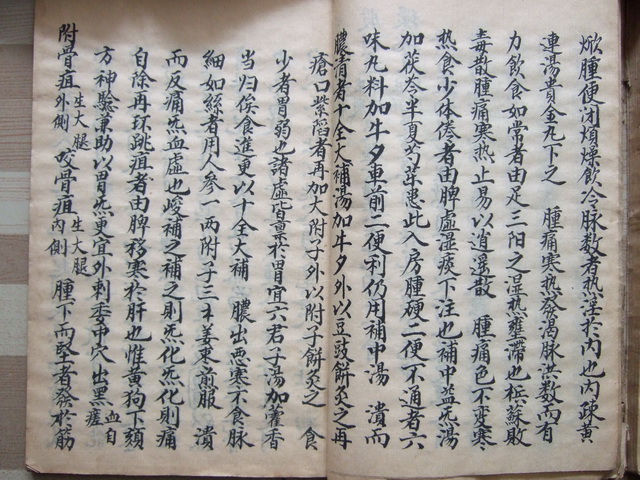 焮腫便閉煩燥飲冷脉数者热淫於内也内疎黄
連湯貴金丸下之 腫痛寒热發渴脉洪数而有
力飲食如常者由足三阳之湿热壅滞也梹蘇敗
毒散腫痛寒热止易以逍遥散 腫痛色不変寒
热食少体倦者由脾虚湿痰下注也補中益炁湯
加茯苓半夏芍葯患此入房腫硬二便不通者六
味丸料加牛夕車前二便利仍用補中湯 潰而
膿清者十全大補湯加牛夕外以豆豉餅炙之再
瘡口紫陷者再加大附子外以附子餅炙之 食
少者胃弱也諸虚皆禀於胃宜六君子湯加藿香
当归候食進更以十全大補 膿出悪寒不食脉
細如絲者用人参一两附子三才姜枣煎服 潰
而反痛炁血虚也峻補之補之則炁化炁化則痛
自除再环跳疽者由脾移寒於肝也惟黄狗下頦
方神驗兼助以胃炁更宜外刺委中穴出黑血自瘥
附骨疽生大腿外側咬骨疽生大腿内側腫下而堅者發於筋